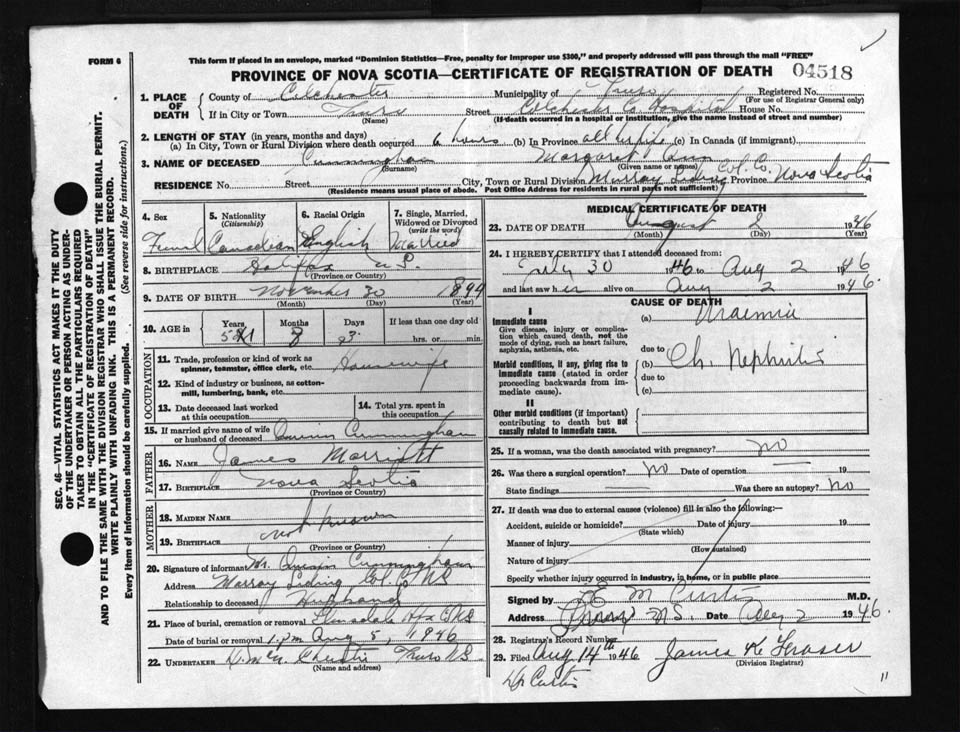 FORM 6
This form if placed in an envelope, marked "Dominion Statistics—Free, penalty for improper use $300," and properly addressed will pass through the mail "FREE"
PROVINCE OF NOVA SCOTIA—CERTIFICATE OF REGISTRATION OF DEATH 04518
1. PLACE OF DEATH County of Colchester Municipality of Truro Registered No.
(For use of Registrar General only)
If in City or Town Truro Street Colchester Co. Hospital House No.
(Name) (If death occurred in a hospital or institution, give the name instead of street and number)
2. LENGTH OF STAY (in years, months and days)
(a) In City, Town or Rural Division where death occurred 6 hours (b) In Province all her life (c) In Canada (if immigrant)
3. NAME OF DECEASED Cunningham Margaret Ann
(Surname) (Given name or names)
RESIDENCE No. Street City, Town or Rural Division Murray Siding Col. Co. Province Nova Scotia
(Residence means usual place of abode. Post Office Address for residents in rural parts not sufficient)
4. Sex 5. Nationality (Citizenship) 6. Racial Origin 7. Single, Married, Widowed or Divorced (write the word)
Canadian English Married
8. BIRTHPLACE Halifax N.S.
(Province or Country)
9. DATE OF BIRTH November 30 1894
(Month) (Day) (Year)
10. AGE in Years Months Days If less than one day old
8 hrs. or min.
11. Trade, profession or kind of work as spinner, teamster, office clerk, etc. Housewife
12. Kind of industry or business, as cotton-mill, lumbering, bank, etc.
13. Date deceased last worked at this occupation
14. Total yrs. spent in this occupation
OCCUPATION
15. If married give name of wife or husband of deceased Cunningham
FATHER
16. NAME James
17. BIRTHPLACE Nova Scotia
(Province or Country)
MOTHER
18. MAIDEN NAME
not known
19. BIRTHPLACE
(Province or Country)
20. Signature of informant Mr. Cunningham
Address Murray Siding Col. Co. N.S.
Relationship to deceased Husband
21. Place of burial, cremation or removal
Date of burial or removal 1 p.m. Aug 5, 1946
22. UNDERTAKER Christie Truro N.S.
(Name and address)
MEDICAL CERTIFICATE OF DEATH
23. DATE OF DEATH August 2 1946
(Month) (Day) (Year)
24. I HEREBY CERTIFY that I attended deceased from:
July 30 1946 to Aug 2 1946
and last saw her alive on Aug 2 1946.
CAUSE OF DEATH
I
Immediate cause
Give disease, injury or complication which caused death, not the mode of dying, such as heart failure, asphyxia, asthenia, etc.
(a) Uraemia
due to
Morbid conditions, if any, giving rise to immediate cause (stated in order proceeding backwards from immediate cause).
(b) Ch. Nephritis
due to
(c)
II
Other morbid conditions (if important) contributing to death but not causally related to immediate cause.
25. If a woman, was the death associated with pregnancy? no
26. Was there a surgical operation? no Date of operation 19
State findings Was there an autopsy? no
27. If death was due to external causes (violence) fill in also the following:—
Accident, suicide or homicide? Date of injury 19
(State which)
Manner of injury
(How sustained)
Nature of injury
Specify whether injury occurred in industry, in home, or in public place
Signed by E M Curtis M.D.
Address N.S. Date Aug 2 1946.
28. Registrar's Record Number
29. Filed Aug 14th 1946 James K Fraser
(Division Registrar)
Dr Curtis
11
SEC. 46—VITAL STATISTICS ACT MAKES IT THE DUTY
OF THE UNDERTAKER OR PERSON ACTING AS UNDER-
TAKER TO OBTAIN ALL THE PARTICULARS REQUIRED
IN THE "CERTIFICATE OF REGISTRATION OF DEATH"
AND TO FILE THE SAME WITH THE DIVISION REGISTRAR WHO SHALL ISSUE THE BURIAL PERMIT.
WRITE PLAINLY WITH UNFADING INK. THIS IS A PERMANENT RECORD.
Every item of information should be carefully supplied. (See reverse side for instructions.)